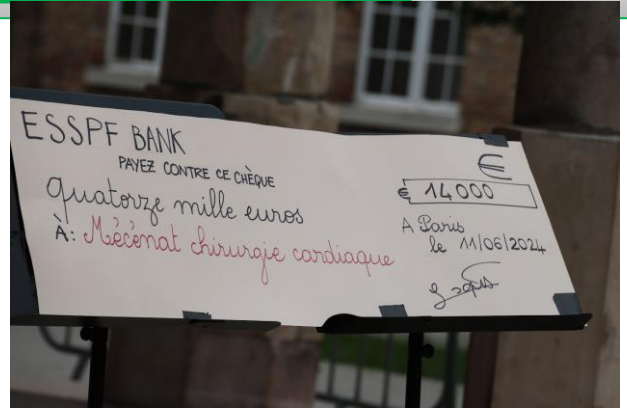 ESSPF BANK
PAYEZ CONTRE CE CHÈQUE
quatorze mille euros
À: Mécénat chirurgie cardiaque
€
€ 14000
A Paris
le 11/06/2024